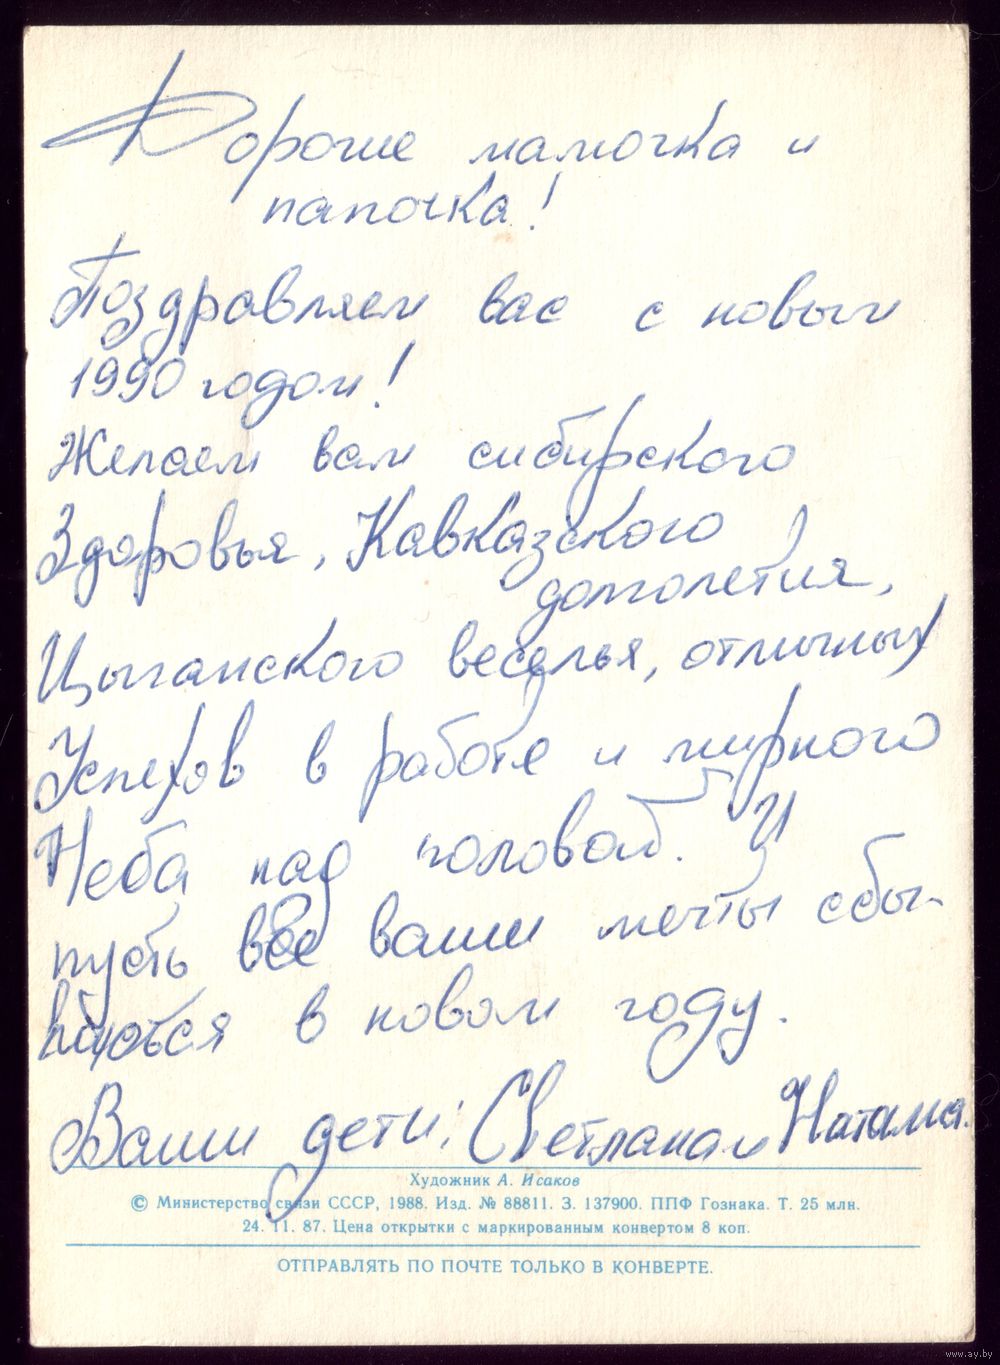 Дорогие мамочка и
папочка!
Поздравляем вас с новым
1990 годом!
Желаем вам сибирского
Здоровья, Кавказского
долголетия,
Цыганского веселья, отличных
Успехов в работе и мирного
Неба над головой. И
пусть все ваши мечты сбы-
ваются в новом году.
Ваши дети: Светлана и Наташа.
Художник А. Исаков
© Министерство связи СССР, 1988. Изд. № 88811. З. 137900. ППФ Гознака. Т. 25 млн.
24. 11. 87. Цена открытки с маркированным конвертом 8 коп.
ОТПРАВЛЯТЬ ПО ПОЧТЕ ТОЛЬКО В КОНВЕРТЕ.
www.ay.by